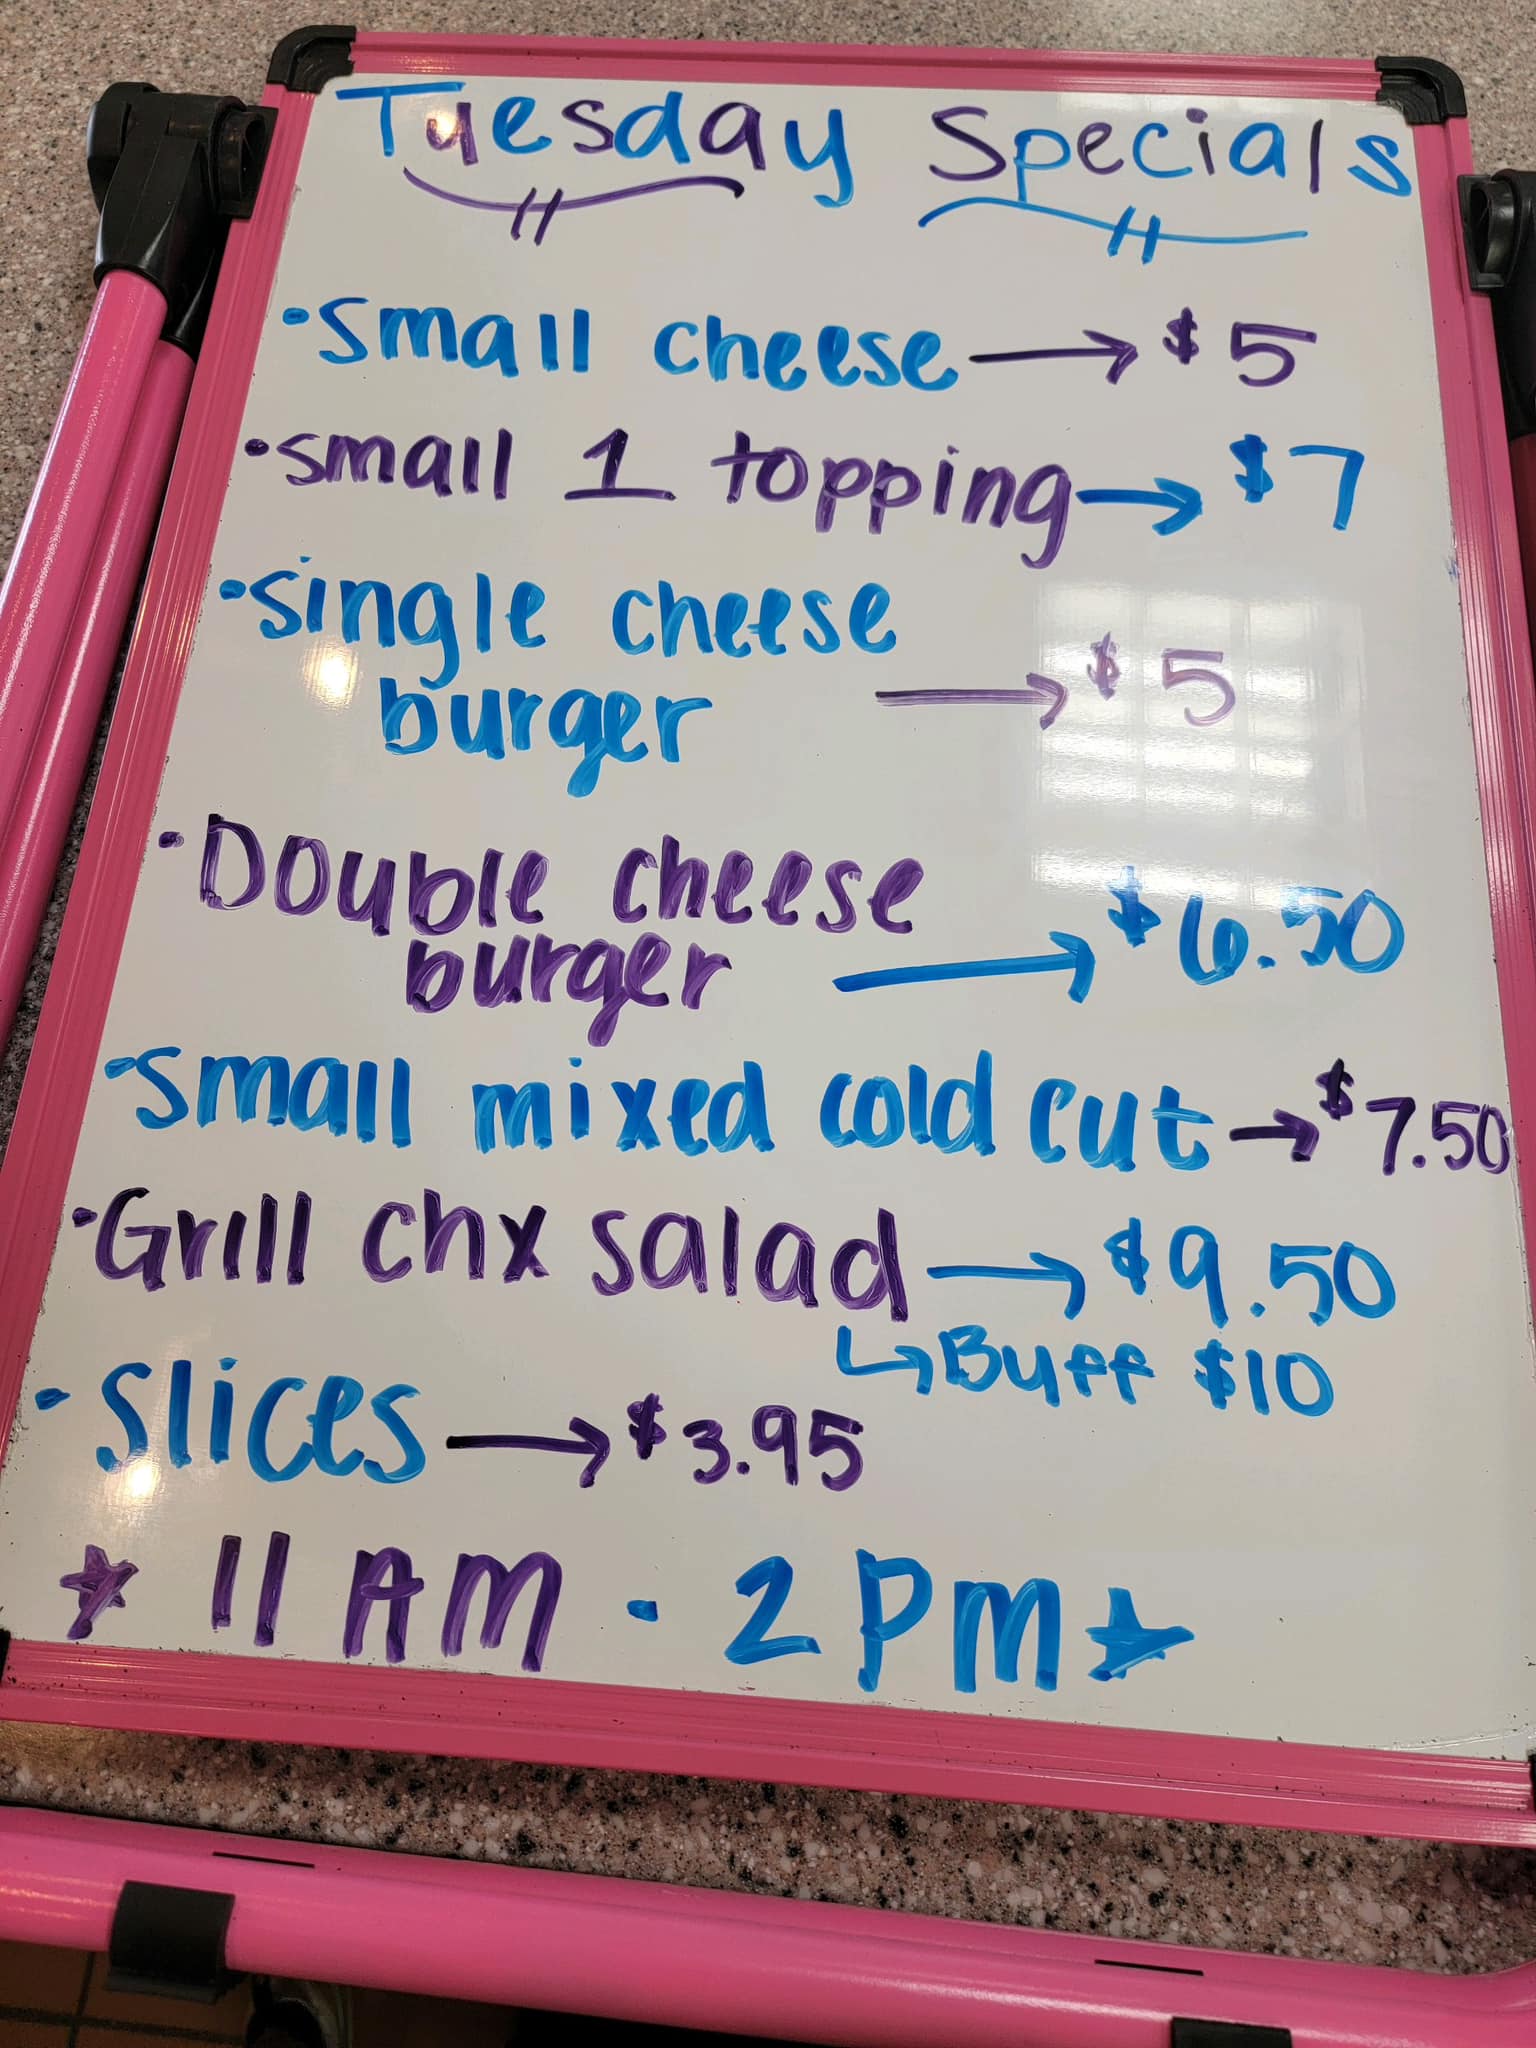 Tuesday Specials
• small cheese → $5
• small 1 topping → $7
• single cheese
burger → $5
• Double cheese
burger → $6.50
• small mixed cold cut → $7.50
• Grill chx salad → $9.50
↳ Buff $10
• slices → $3.95
☆ 11 AM - 2 PM ☆